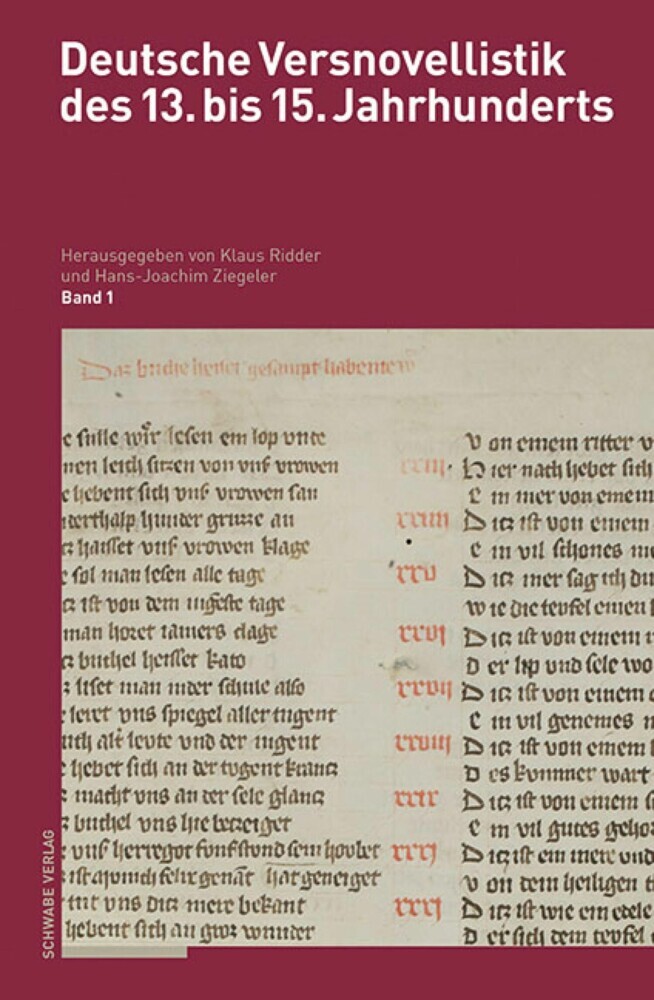 Deutsche Versnovellistik
des 13. bis 15. Jahrhunderts
Herausgegeben von Klaus Ridder
und Hans-Joachim Ziegeler
Band 1
Daz buche heizet gesampt habentew
e sulle wir lesen ein lop vnte
nen leich sitzen von vnſ vrowen
e hebent sich vnſ vrowen
hunder gruzze an
haisset vnſ vrowen klage
e sol man lesen alle tage
ist von dem tage
man horet iamers clage
buchel heisset kato
liset man in der schule also
leret vns spiegel aller tugent
alt levte vnd der iugent
hebet sich an der tvgent krantz
macht vns an der sele glantz
buchel vns hie
vnſ herregot funfstund sein hovbet
genant hat geneiget
tut vns ditz mere bekant
hebent sich an groz wunder
Von einem ritter v
xxiii. Hier nach hebet sich
Ein mer von einem
xxiiii Ditz ist von einem
Ein vil schones me
xxv Ditz mer sag ich
Wie die tevfel einen
xxvi Ditz ist von einem
Der lip vnd sele wo
xxvii Ditz ist von einem
Ein vil genemes
xxviii Ditz ist von einem
Des kvnner wart
xxix Ditz ist von einem
Ein vil gutes
xxx Ditz ist ein mere vnd
Von dem heiligen
xxxi Ditz ist wie ein edele
Der sich dem tevfel
SCHWABE VERLAG